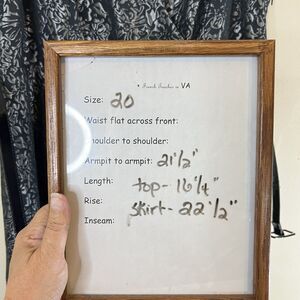 • French Teacher in VA
Size: 20
Waist flat across front:
Shoulder to shoulder:
Armpit to armpit: 21 1/2"
Length: top - 16 1/4"
Rise: skirt - 22 1/2"
Inseam: